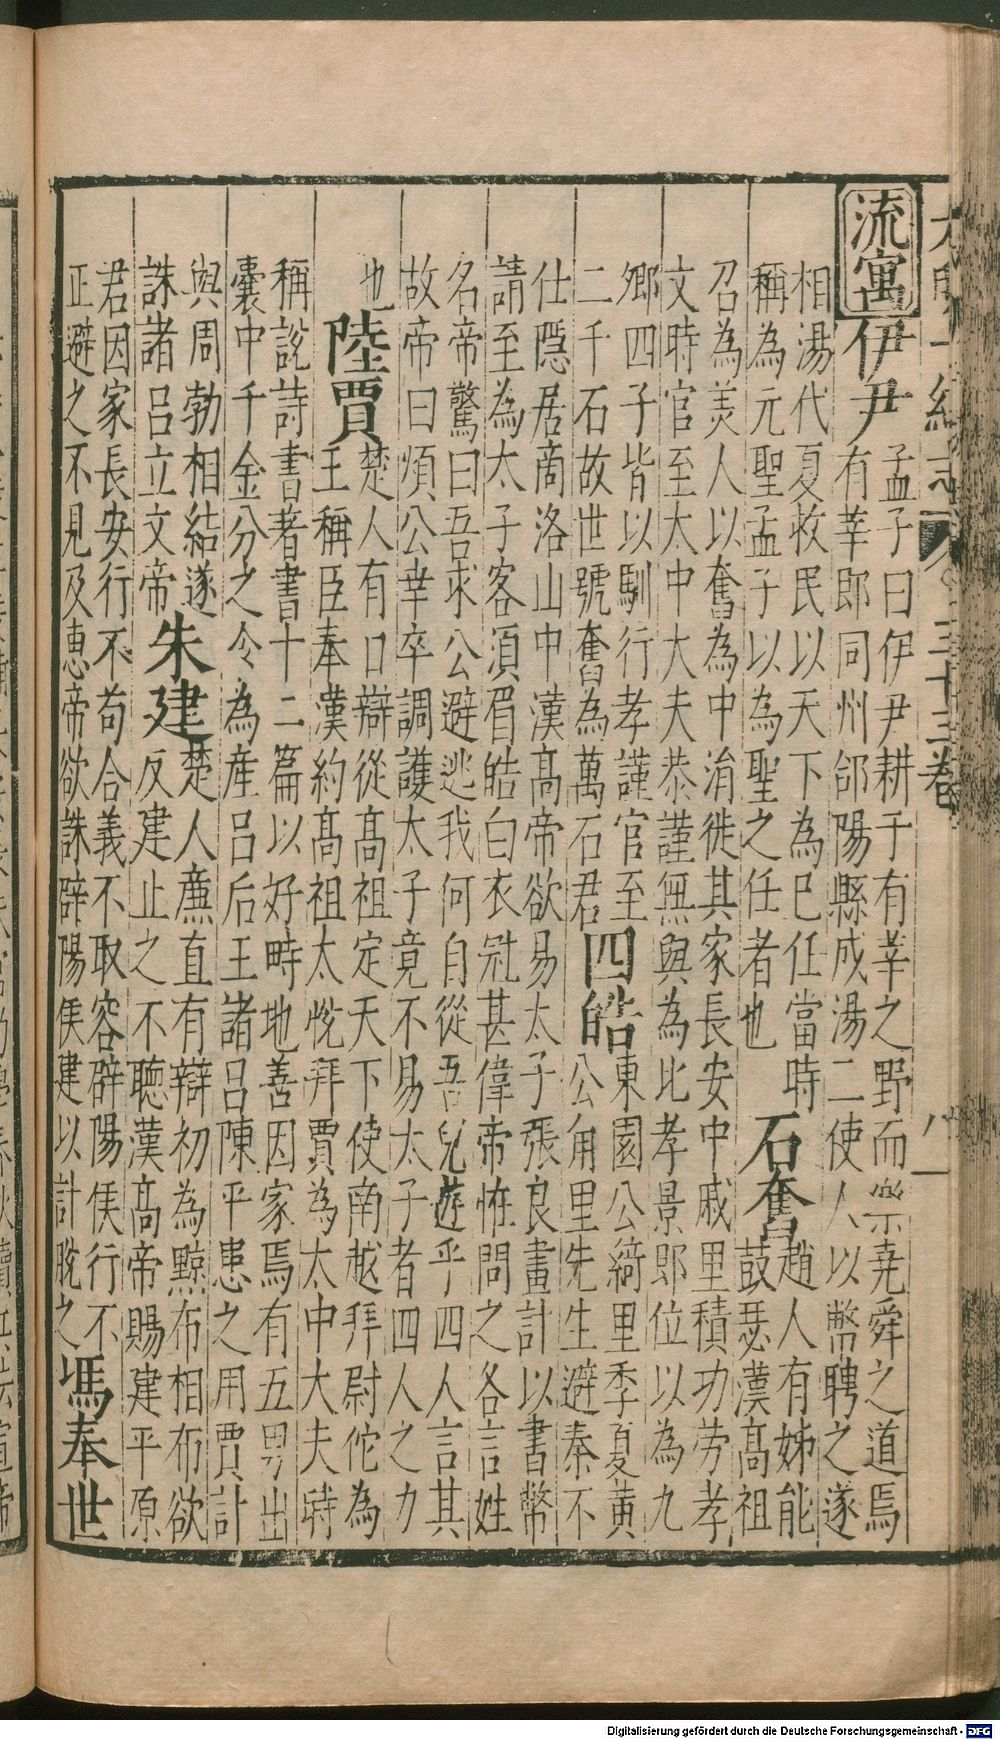 大明一統志 三十三卷
流寓 伊尹
孟子曰伊尹耕于有莘之野而樂堯舜之道焉
有莘即同州郃陽縣成湯二使人以幣聘之遂
相湯代夏救民以天下為已任當時
稱為元聖孟子以為聖之任者也
石奮
趙人有姊能
鼓瑟漢高祖
召為美人以奮為中涓徙其家長安中戚里積功勞孝
文時官至太中大夫恭謹無與為比孝景即位以為九
卿四子皆以馴行孝謹官至
二千石故世號奮為萬石君
四皓
東園公綺里季夏黃
公甪里先生避秦不
仕隱居商洛山中漢高帝欲易太子張良畫計以書幣
請至為太子客須眉皓白衣冠甚偉帝恠問之各言姓
名帝驚曰吾求公避逃我何自從吾兒遊乎四人言其
故帝曰煩公幸卒調護太子竟不易太子者四人之力
也
陸賈
楚人有口辯從高祖定天下使南越拜尉佗為
王稱臣奉漢約高祖太悅拜賈為太中大夫時
稱說詩書著書十二篇以好畤地善因家焉有五男出
囊中千金分之令為產呂后王諸呂陳平患之用賈計
與周勃相結遂
誅諸呂立文帝
朱建
楚人廉直有辯初為黥布相布欲
反建止之不聽漢高帝賜建平原
君因家長安行不苟合義不取容辟陽侯行不
正避之不見及惠帝欲誅辟陽侯建以計脫之
馮奉世
Digitalisierung gefördert durch die Deutsche Forschungsgemeinschaft - DFG